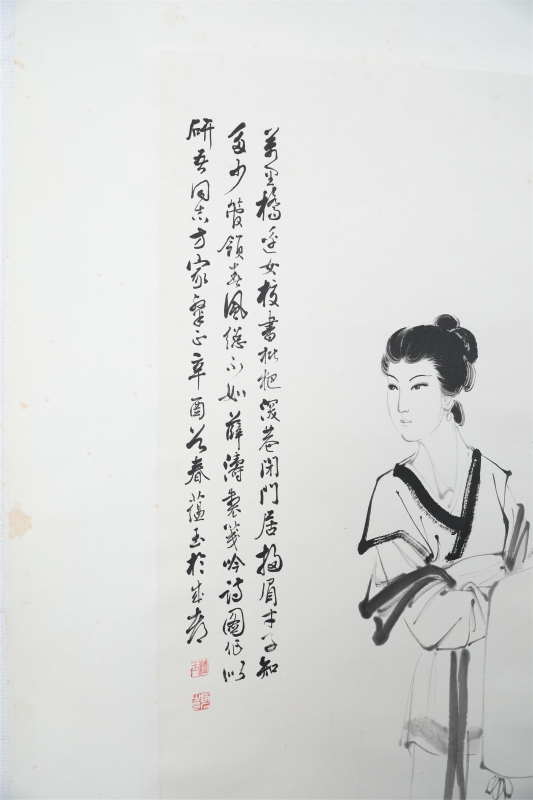 萬里橋边女校書枇杷深巷閉門居掃眉才子知
多少管領春風總不如薛濤製箋吟詩圖作以
研吾同志方家粲正辛酉之春蘊玉於成都